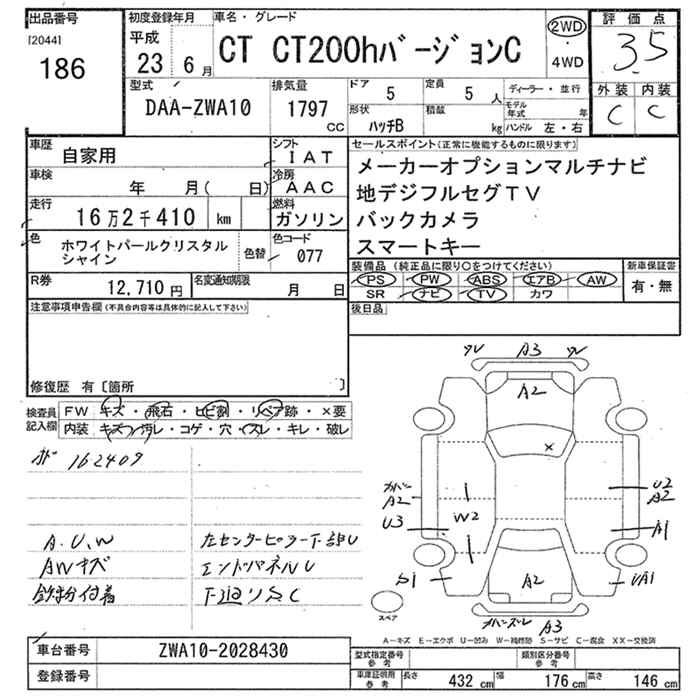 出品番号
[2044]
186
初度登録年月
平成
23年 6月
車名・グレード
CT CT200hバージョンC
2WD
・
4WD
評価点
3.5
外装 内装
C C
型式
DAA-ZWA10
排気量
1797
CC
ドア
5
定員
5 人
形状
ハッチB
積酸
kg
ディーラー・並行
モデル年式 年
ハンドル 左・右
車歴
自家用
シフト
IAT
車検
年 月( 日)
冷房
AAC
走行
16万2千410 km
燃料
ガソリン
色
ホワイトパールクリスタル
シャイン
色替
色コード
077
R券
12,710 円
名変通知期限
月 日
セールスポイント(正常に機能するものに限ります)
メーカーオプションマルチナビ
地デジフルセグTV
バックカメラ
スマートキー
装備品 (純正品に限り○をつけてください)
PS PW ABS エアB AW
SR ナビ TV カワ
新車保証書
有・無
後日品
注意事項申告欄(不具合内容等は具体的に記入して下さい)
修復歴 有〔箇所 〕
検査員
記入欄
FW キズ・飛石・ヒビ割・リペア跡・×要
内装 キズ・汚レ・コゲ・穴・スレ・キレ・破レ
162409
A.U.W
AWキズ
鉄粉付着
左センターピラー下部U
エンドパネルU
下廻りSC
ワレ A3 ワレ
A2
×
カバー
A2
U3
W2
U2
A2
A1
S1
A2
UA1
A3
スペア
A-キズ E-エクボ U-凹み W-補修跡 S-サビ C-腐食 XX-交換済
車台番号
ZWA10-2028430
登録番号
型式指定番号
参考
類別区分番号
参考
車庫証明用
参考
長さ 432 cm
幅 176 cm
高さ 146 cm